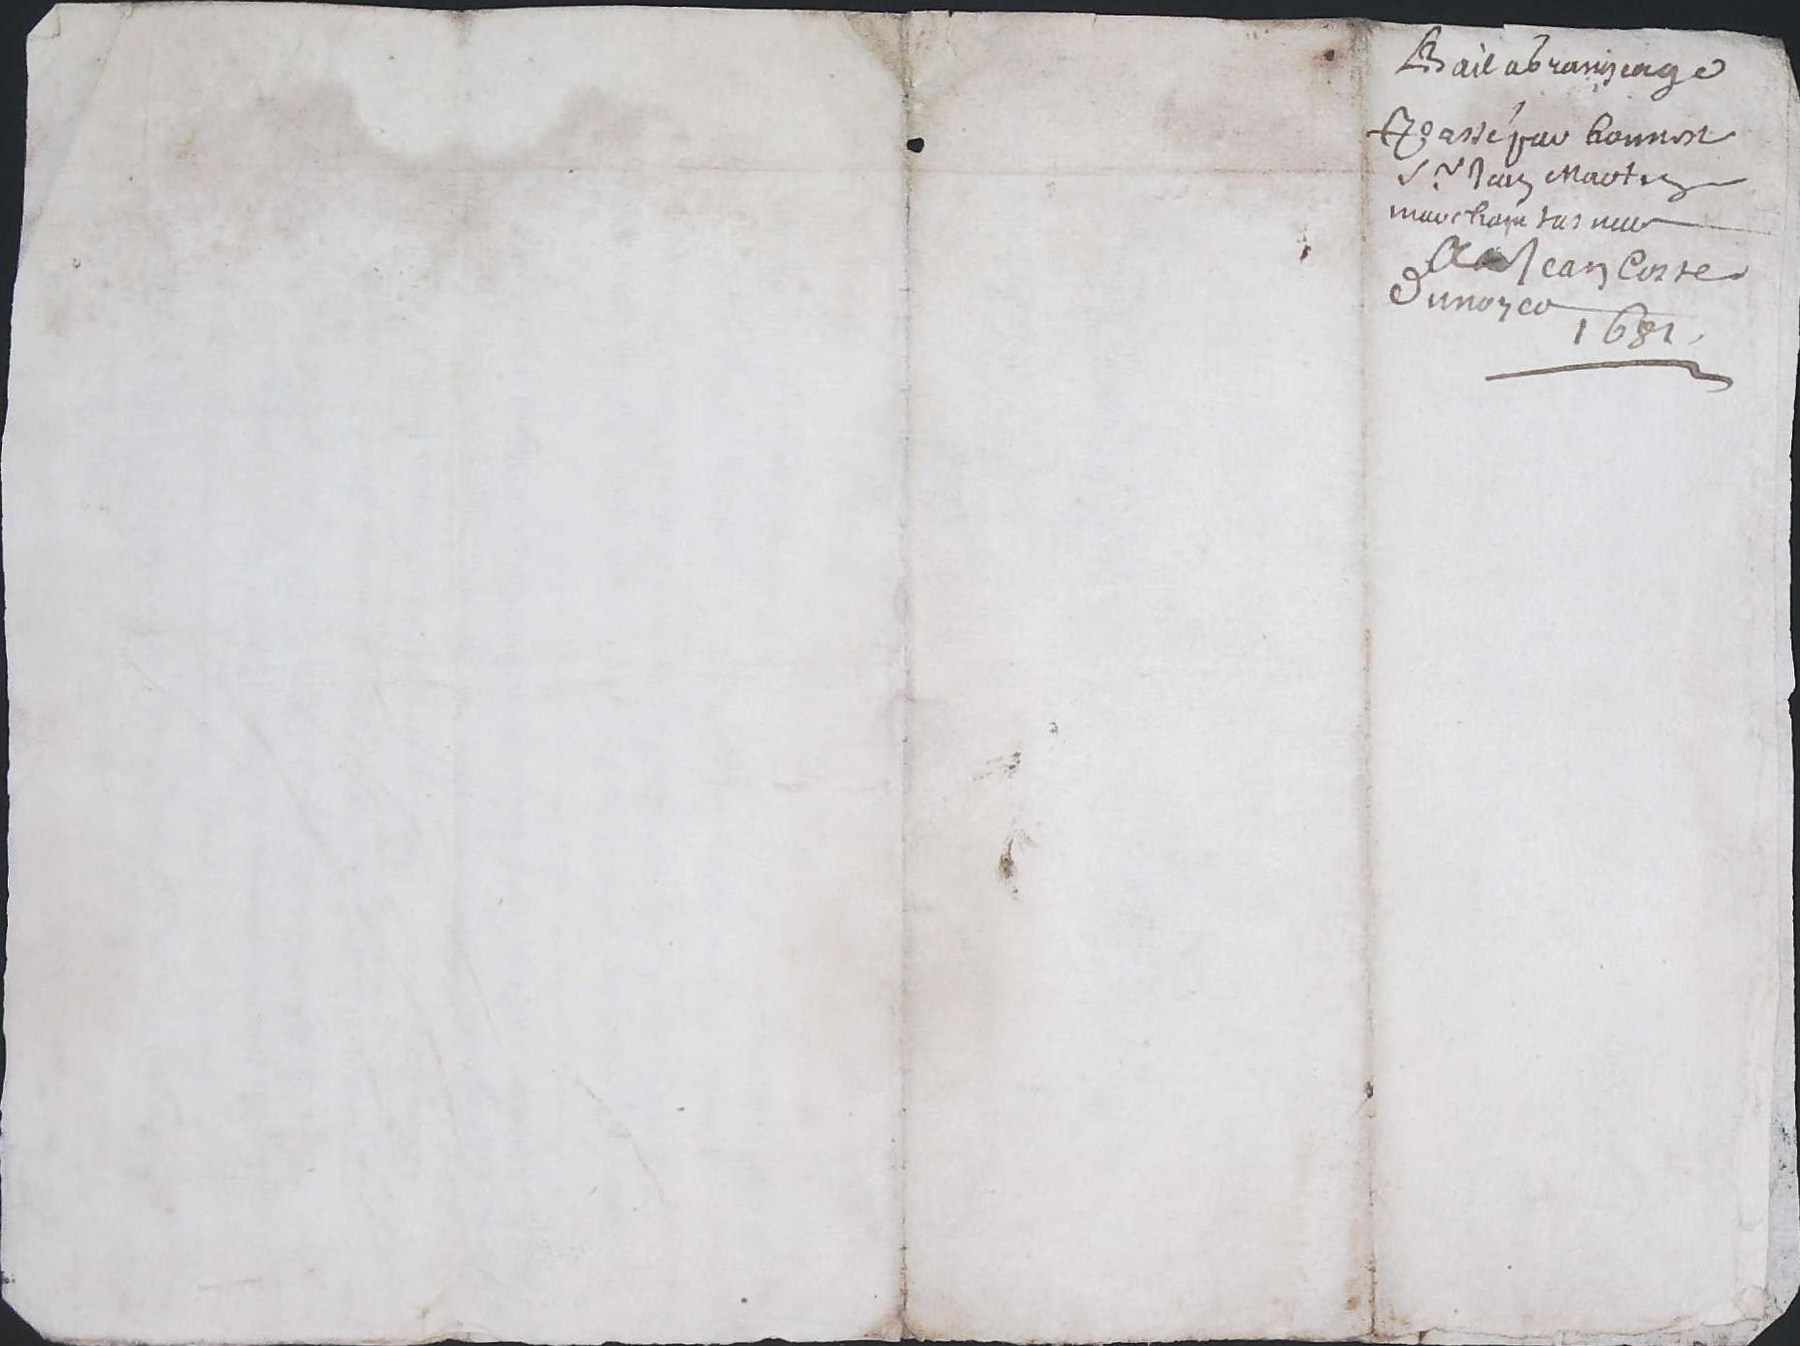 Bail a branseage
Passé par honnest
Sr Jean Martin
marchant
A Jean Coste
du noyer
1681.